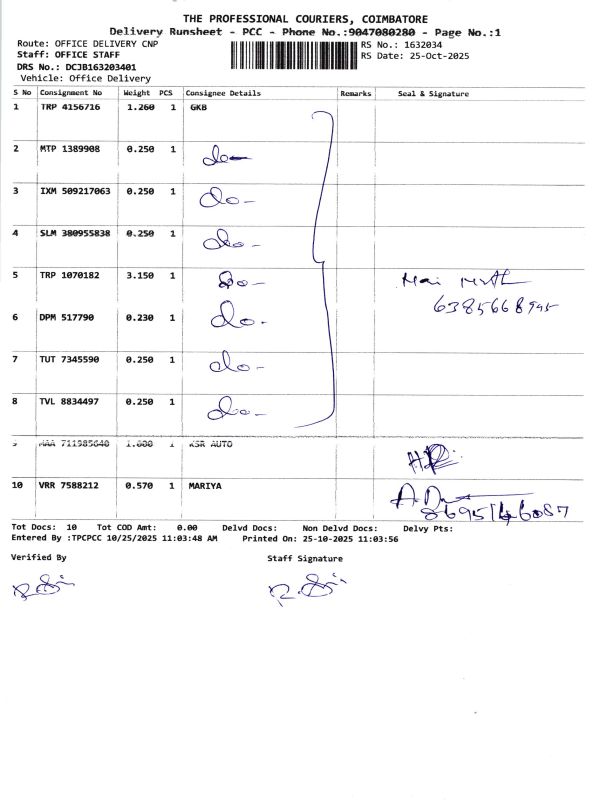 THE PROFESSIONAL COURIERS, COIMBATORE
Delivery Runsheet - PCC - Phone No.:9047080280 - Page No.:1
Route: OFFICE DELIVERY CNP RS No.: 1632034
Staff: OFFICE STAFF RS Date: 25-Oct-2025
DRS No.: DCJB163203401
Vehicle: Office Delivery
S No Consignment No Weight PCS Consignee Details Remarks Seal & Signature
1 TRP 4156716 1.260 1 GKB
2 MTP 1389908 0.250 1 do-
3 IXM 509217063 0.250 1 do-
4 SLM 380955838 0.250 1 do-
5 TRP 1070182 3.150 1 do-
6385668945
6 DPM 517790 0.230 1 do-
7 TUT 7345590 0.250 1 do-
8 TVL 8834497 0.250 1 do-
9 MAA 711985640 1.000 1 KSR AUTO
10 VRR 7588212 0.570 1 MARIYA
8695146087
Tot Docs: 10 Tot COD Amt: 0.00 Delvd Docs: Non Delvd Docs: Delvy Pts:
Entered By :TPCPCC 10/25/2025 11:03:48 AM Printed On: 25-10-2025 11:03:56
Verified By Staff Signature